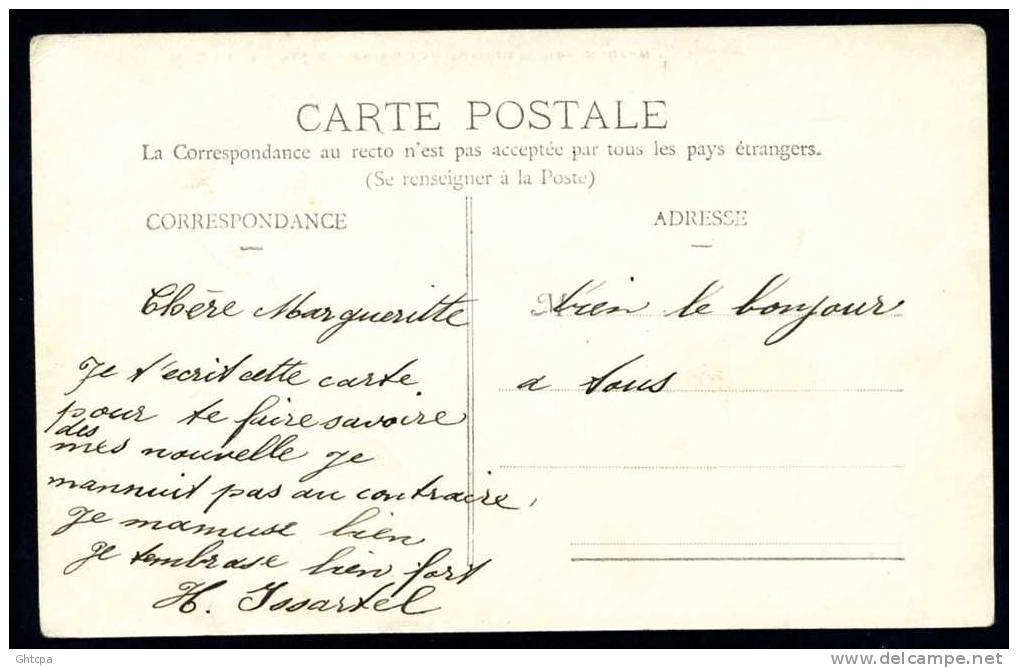 CARTE POSTALE
La Correspondance au recto n'est pas acceptée par tous les pays étrangers.
(Se renseigner à la Poste)
CORRESPONDANCE
Chère Margueritte
Je t'ecrit cette carte
pour te faire savoire
des
mes nouvelle Je
mannuit pas au contraire,
Je mamuse bien
Je tembrase bien fort
H. Issartel
ADRESSE
bien le bonjour
a tous
Ghtcpa
www.delcampe.net